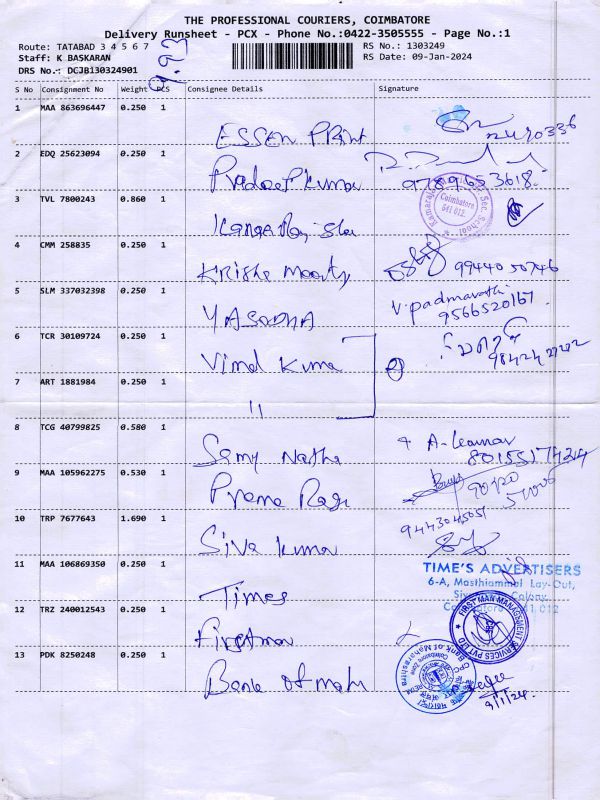 THE PROFESSIONAL COURIERS, COIMBATORE
Delivery Runsheet - PCX - Phone No.:0422-3505555 - Page No.:1
Route: TATABAD 3 4 5 6 7
RS No.: 1303249
Staff: K BASKARAN
RS Date: 09-Jan-2024
DRS No.: DCJB130324901
S No Consignment No Weight PCS Consignee Details Signature
1 MAA 863696447 0.250 1 ESSEN PRint
2 EDQ 25623094 0.250 1 Pradeep Kumar 9789653618
3 TVL 7800243 0.860 1
Coimbatore 641 012
Sec. School
4 CMM 258835 0.250 1 Krishe Moorty 99440 50746
5 SLM 337032398 0.250 1 YASODHA V.Padmavathi
9566520167
6 TCR 30109724 0.250 1 Vimal Kuma
7 ART 1881984 0.250 1 11
8 TCG 40799825 0.580 1 Samy Natha
9 MAA 105962275 0.530 1
10 TRP 7677643 1.690 1 Siva Kumar 9443045051
11 MAA 106869350 0.250 1 Times
TIME'S ADVERTISERS
6-A, Masthiammal Lay-Out,
Colony,
Coimbatore 641 012
12 TRZ 240012543 0.250 1 Firstman
FIRST MAN MANAGEMENT SERVICES PVT LTD
13 PDK 8250248 0.250 1 Bank of mah
Bank of Maharashtra
Coimbatore Zone
9/1/24.